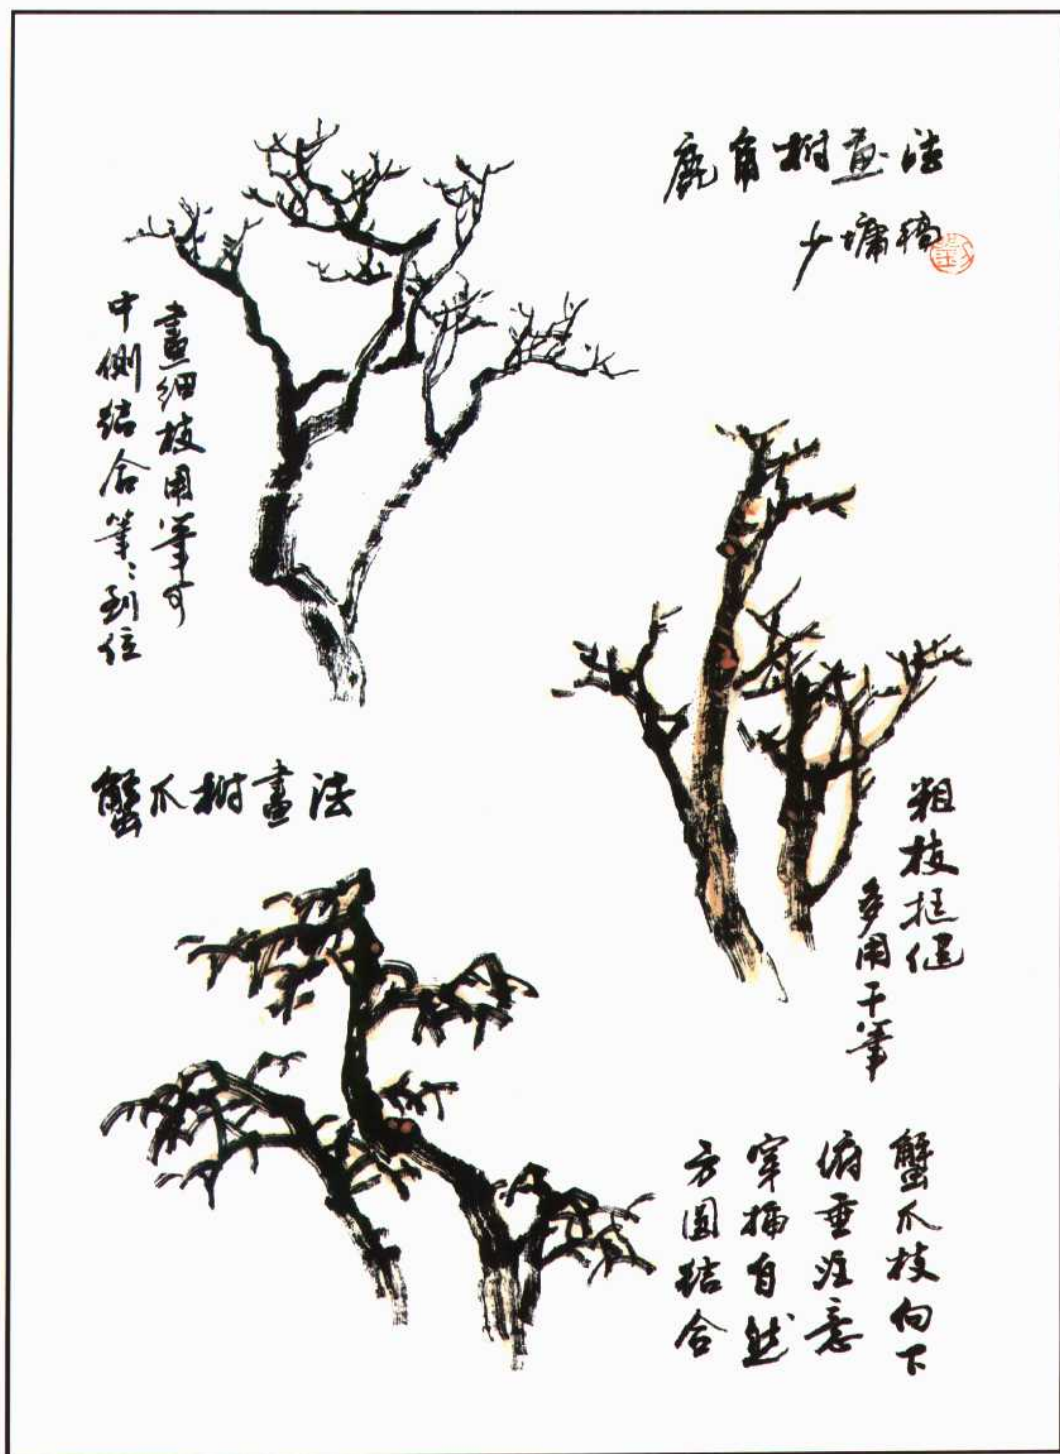 鹿角树畫法
少墉稿
畫细枝用筆可
中侧结合筆〻到位
粗枝挺健
多用干筆
蟹爪树畫法
蟹爪枝向下
俯垂注意
穿插自然
方圆结合